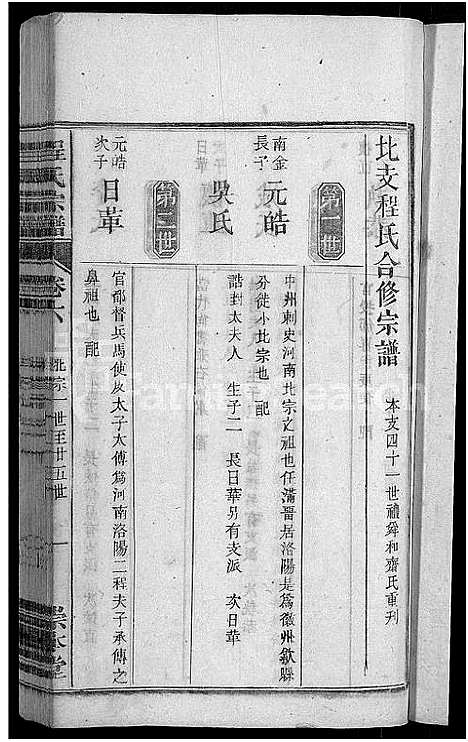 北支程氏合修宗譜
本支四十一世禮舜和齋氏重刋
第一世
南金長子
元皓
中州刺史河南北宗之祖也任蒲晉居洛陽是為徽州歙縣
分徙小北宗也 配
吳氏
誥封太夫人 生子二 長日華另有支派 次日葦
第二世
元皓次子
日葦
官都督兵馬使贠太子太傅為河南洛陽二程夫子承傳之
鼻祖也 配
程氏宗譜
卷六
北宗一世至廿五世
一
崇本堂